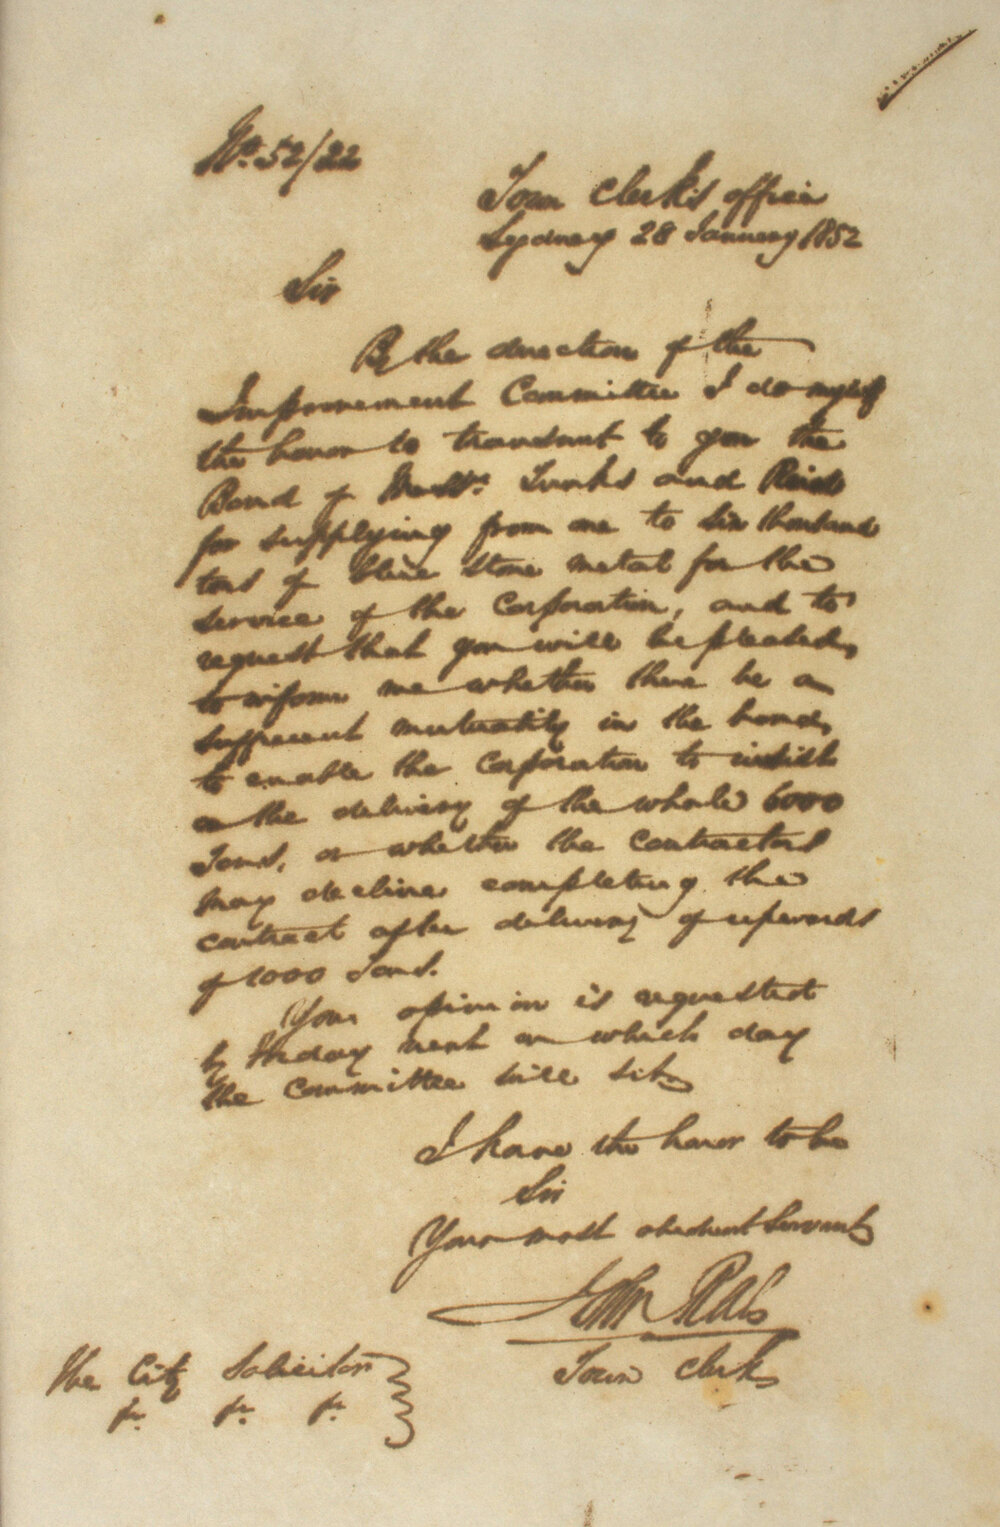 No. 52/22
Town Clerk's office
Sydney 28 January 1852
Sir
By the direction of the
Improvement Committee I do myself
the honor to transmit to you the
Bond of Messrs. Tunks and Reid
for supplying from one to six thousand
tons of blue stone metal for the
service of the Corporation, and to
request that you will be pleased
to inform me whether there be a
sufficient mutuality in the bond
to enable the Corporation to insist
on the delivery of the whole 6000
Tons, or whether the contractors
may decline completing the
contract after delivery of upwards
of 1000 Tons.
Your opinion is requested
by next on which day
the Committee will sit
I have the honor to be
Sir
Your most obedient Servant
John
Town Clerk
The City Solicitor